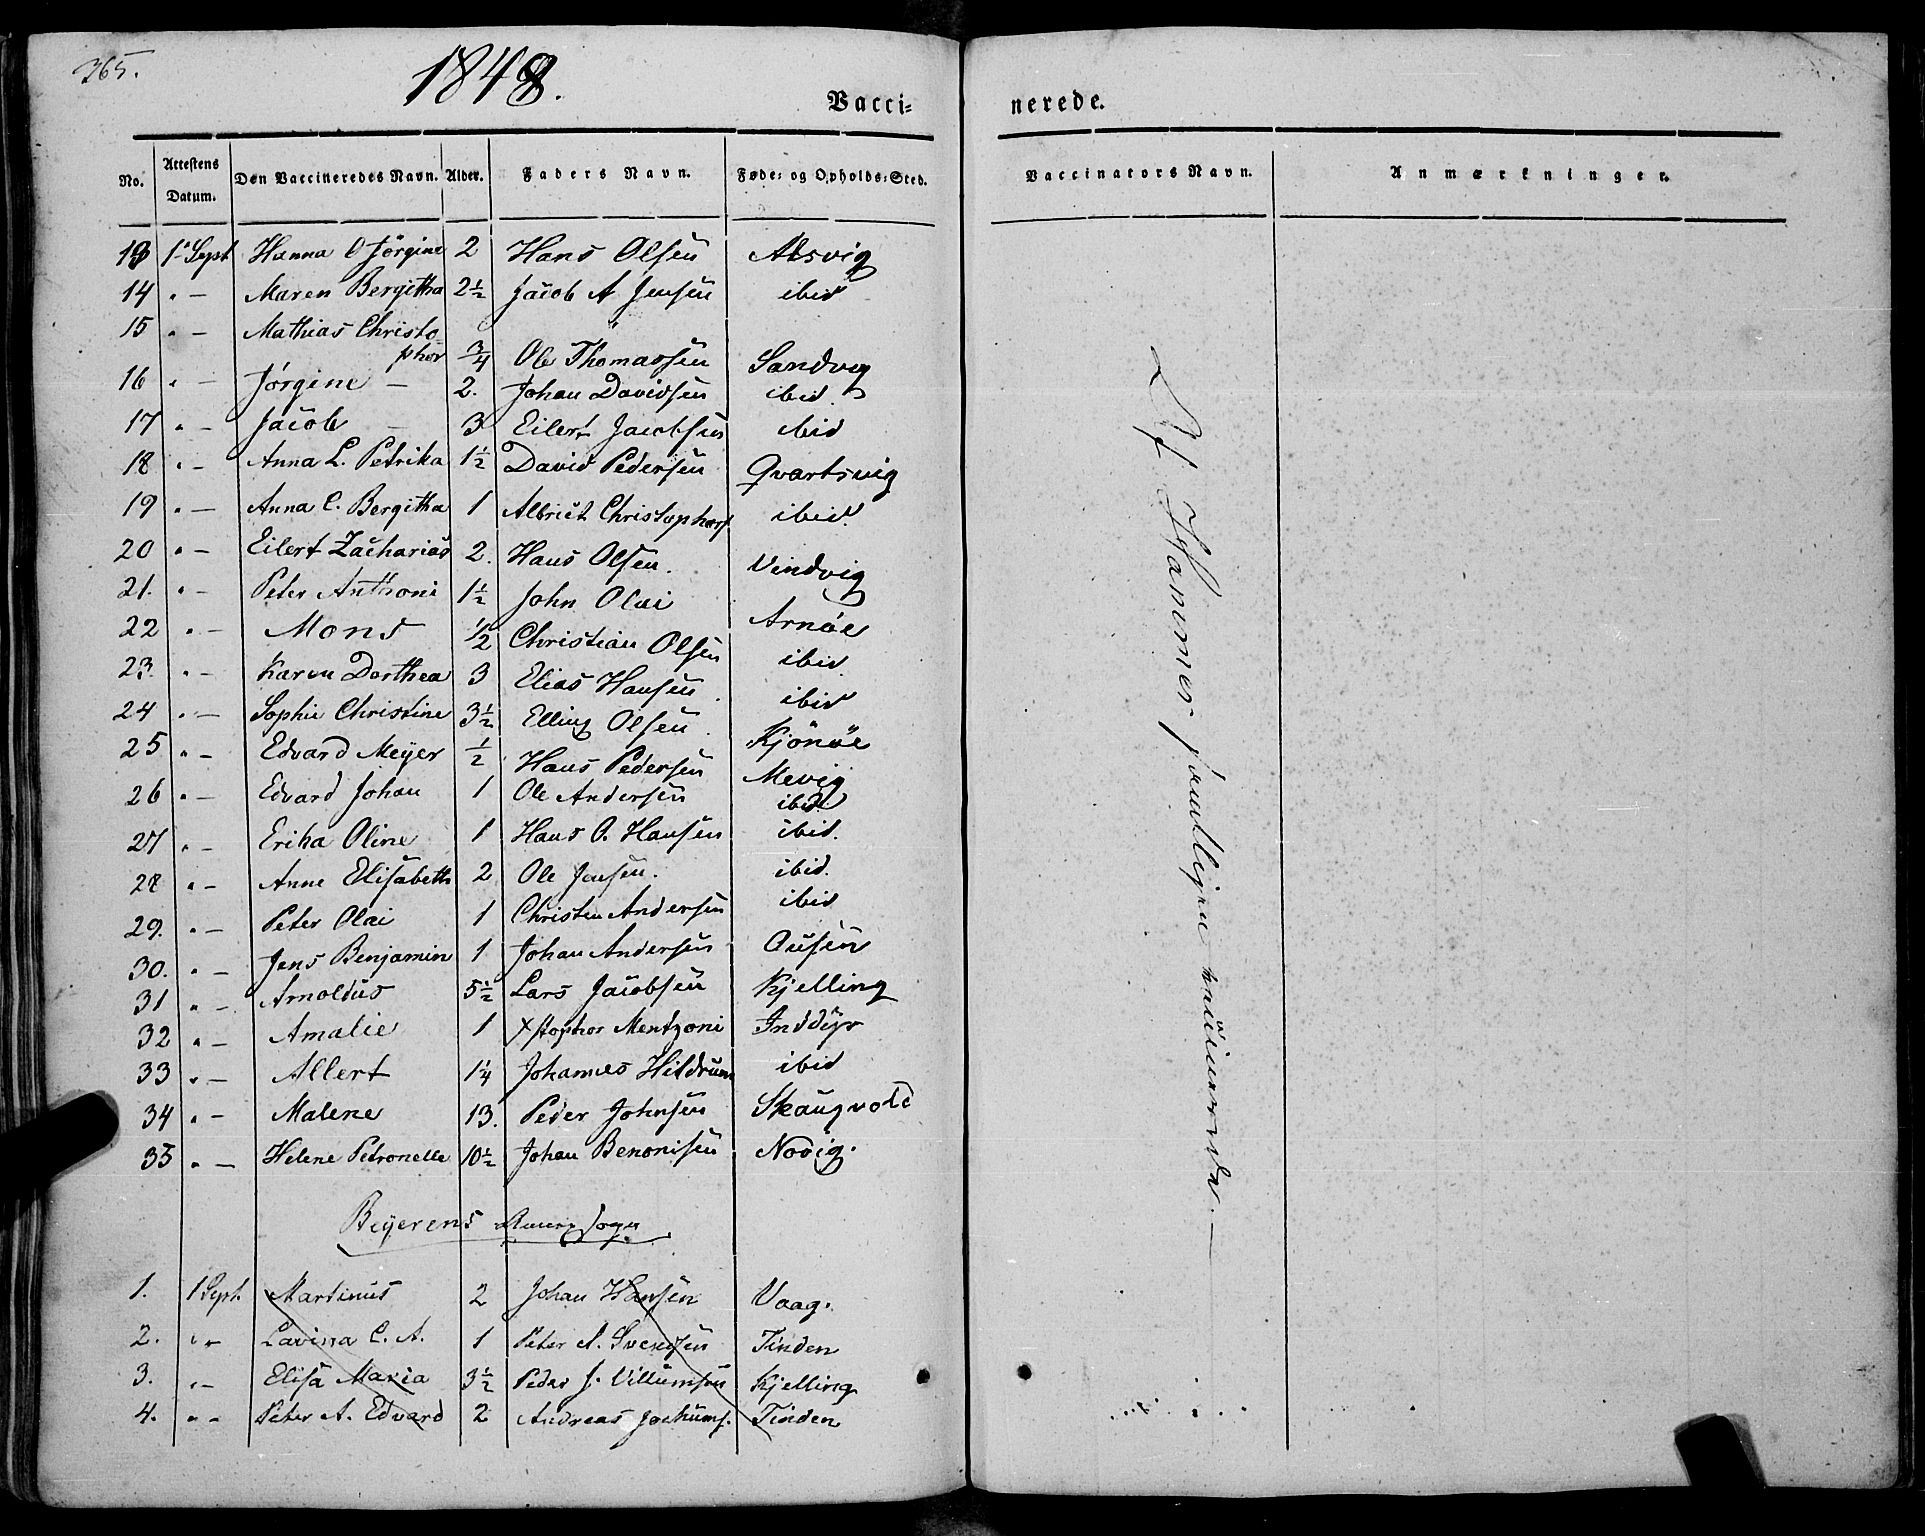 365.
1848.
Vacci= nerede.
No. Attestens Datum. Den Vaccineredes Navn. Alder. Faders Navn. Føde= og Opholds=Sted. Vaccinators Navn. Anmærkninger.
13 1 Sept Hanna O Jörgine 2 Hans Olsen Alsvig
14 " — Maren Bergitha 2½ Jacob A Jensen ibid
15 " — Mathias Christo-
phor ¾ Ole Thomassen Sandvig
16 " — Jörgine — 2. Johan Davidsen ibid.
17 " — Jacob — 3 Eilert Jacobsen ibid
18 " — Anna L. Petrika 1½ David Pedersen Qvartsvig
19 " — Anna C. Bergitha 1 Albrict Christophers ibid.
20 " — Eilert Zacharias 2. Hans Olsen. Vindvig
21. " — Peter Anthoni 1½ John Olai Arnöe
22 " — Mons ½ Christian Olsen ibid
23. " — Karen Dorthea 3 Elias Hansen ibid
24 " — Sophie Christine 3½ Elling Olsen Kjönöe
25 " — Edvard Meyer ½ Hans Pedersen Mevig
26 " — Edvard Johan 1 Ole Andersen ibid
27 " — Erika Oline 1 Hans O. Hansen ibid.
28 " — Anne Elisabeth 2 Ole Jensen. ibid.
29. " — Peter Olai 1 Christen Andersen ibid
30. " — Jens Benjamin 1 Johan Andersen Ousen
31 " — Arnoldus 5½ Lars Jacobsen Kjelling
32 " — Amalie 1 Xstophor Mentzoni Inddyr
33 " — Allert 1¼ Johannes Hildrum ibid
34 " — Malene 13. Peder Johnsen Skaugvold
35 " — Helene Petronelle 10½ Johan Benonisen Novig.
Beyerens Annex Sogn
1. 1 Sept. Martinus 2 Johan Hansen Vaag.
2. " — Lavina C. A. 1 Peter A. Svendsen Tinden
3. " — Elisa Maria 3½ Peder J. Villumsen Kjelling
4. " — Peter A. Edvard 2 Andreas Jochums. Tinden
Af Hammer samtlige